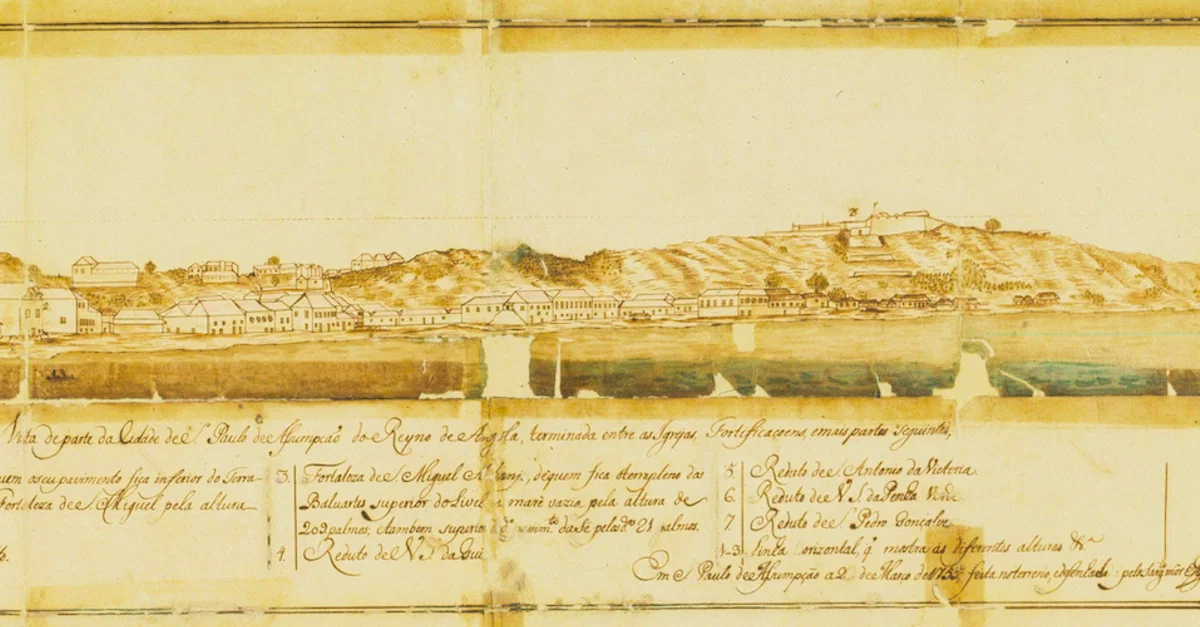 Vista de parte da Cidade de S. Paulo de Assumpção do Reyno de Angola, terminada entre as Igrejas, Fortificaçoens, e mais partes seguintes,
uem o seu pavimento fica inferior do Terra-
Fortaleza de S. Miguel pela altura
3. Fortaleza de S. Miguel, dequem fica oterrapleno dos
Baluartes superior do Livel a maré vazia pela altura de
209 palmos, etambem superior da Sé pelos 21 palmos.
4. Reducto de N. S. da Gui
5. Reduto de S. Antonio da Victoria.
6. Reduto de N. S. da Penha Verde
7. Reduto de S. Pedro Gonçalve
1-3 Linha Orizontal, q̃ mostra as diferentes alturas &ª
Em S. Paulo de Assumpção a 2 de Março de 1755 feita no terreno, pelo Sarg. mór